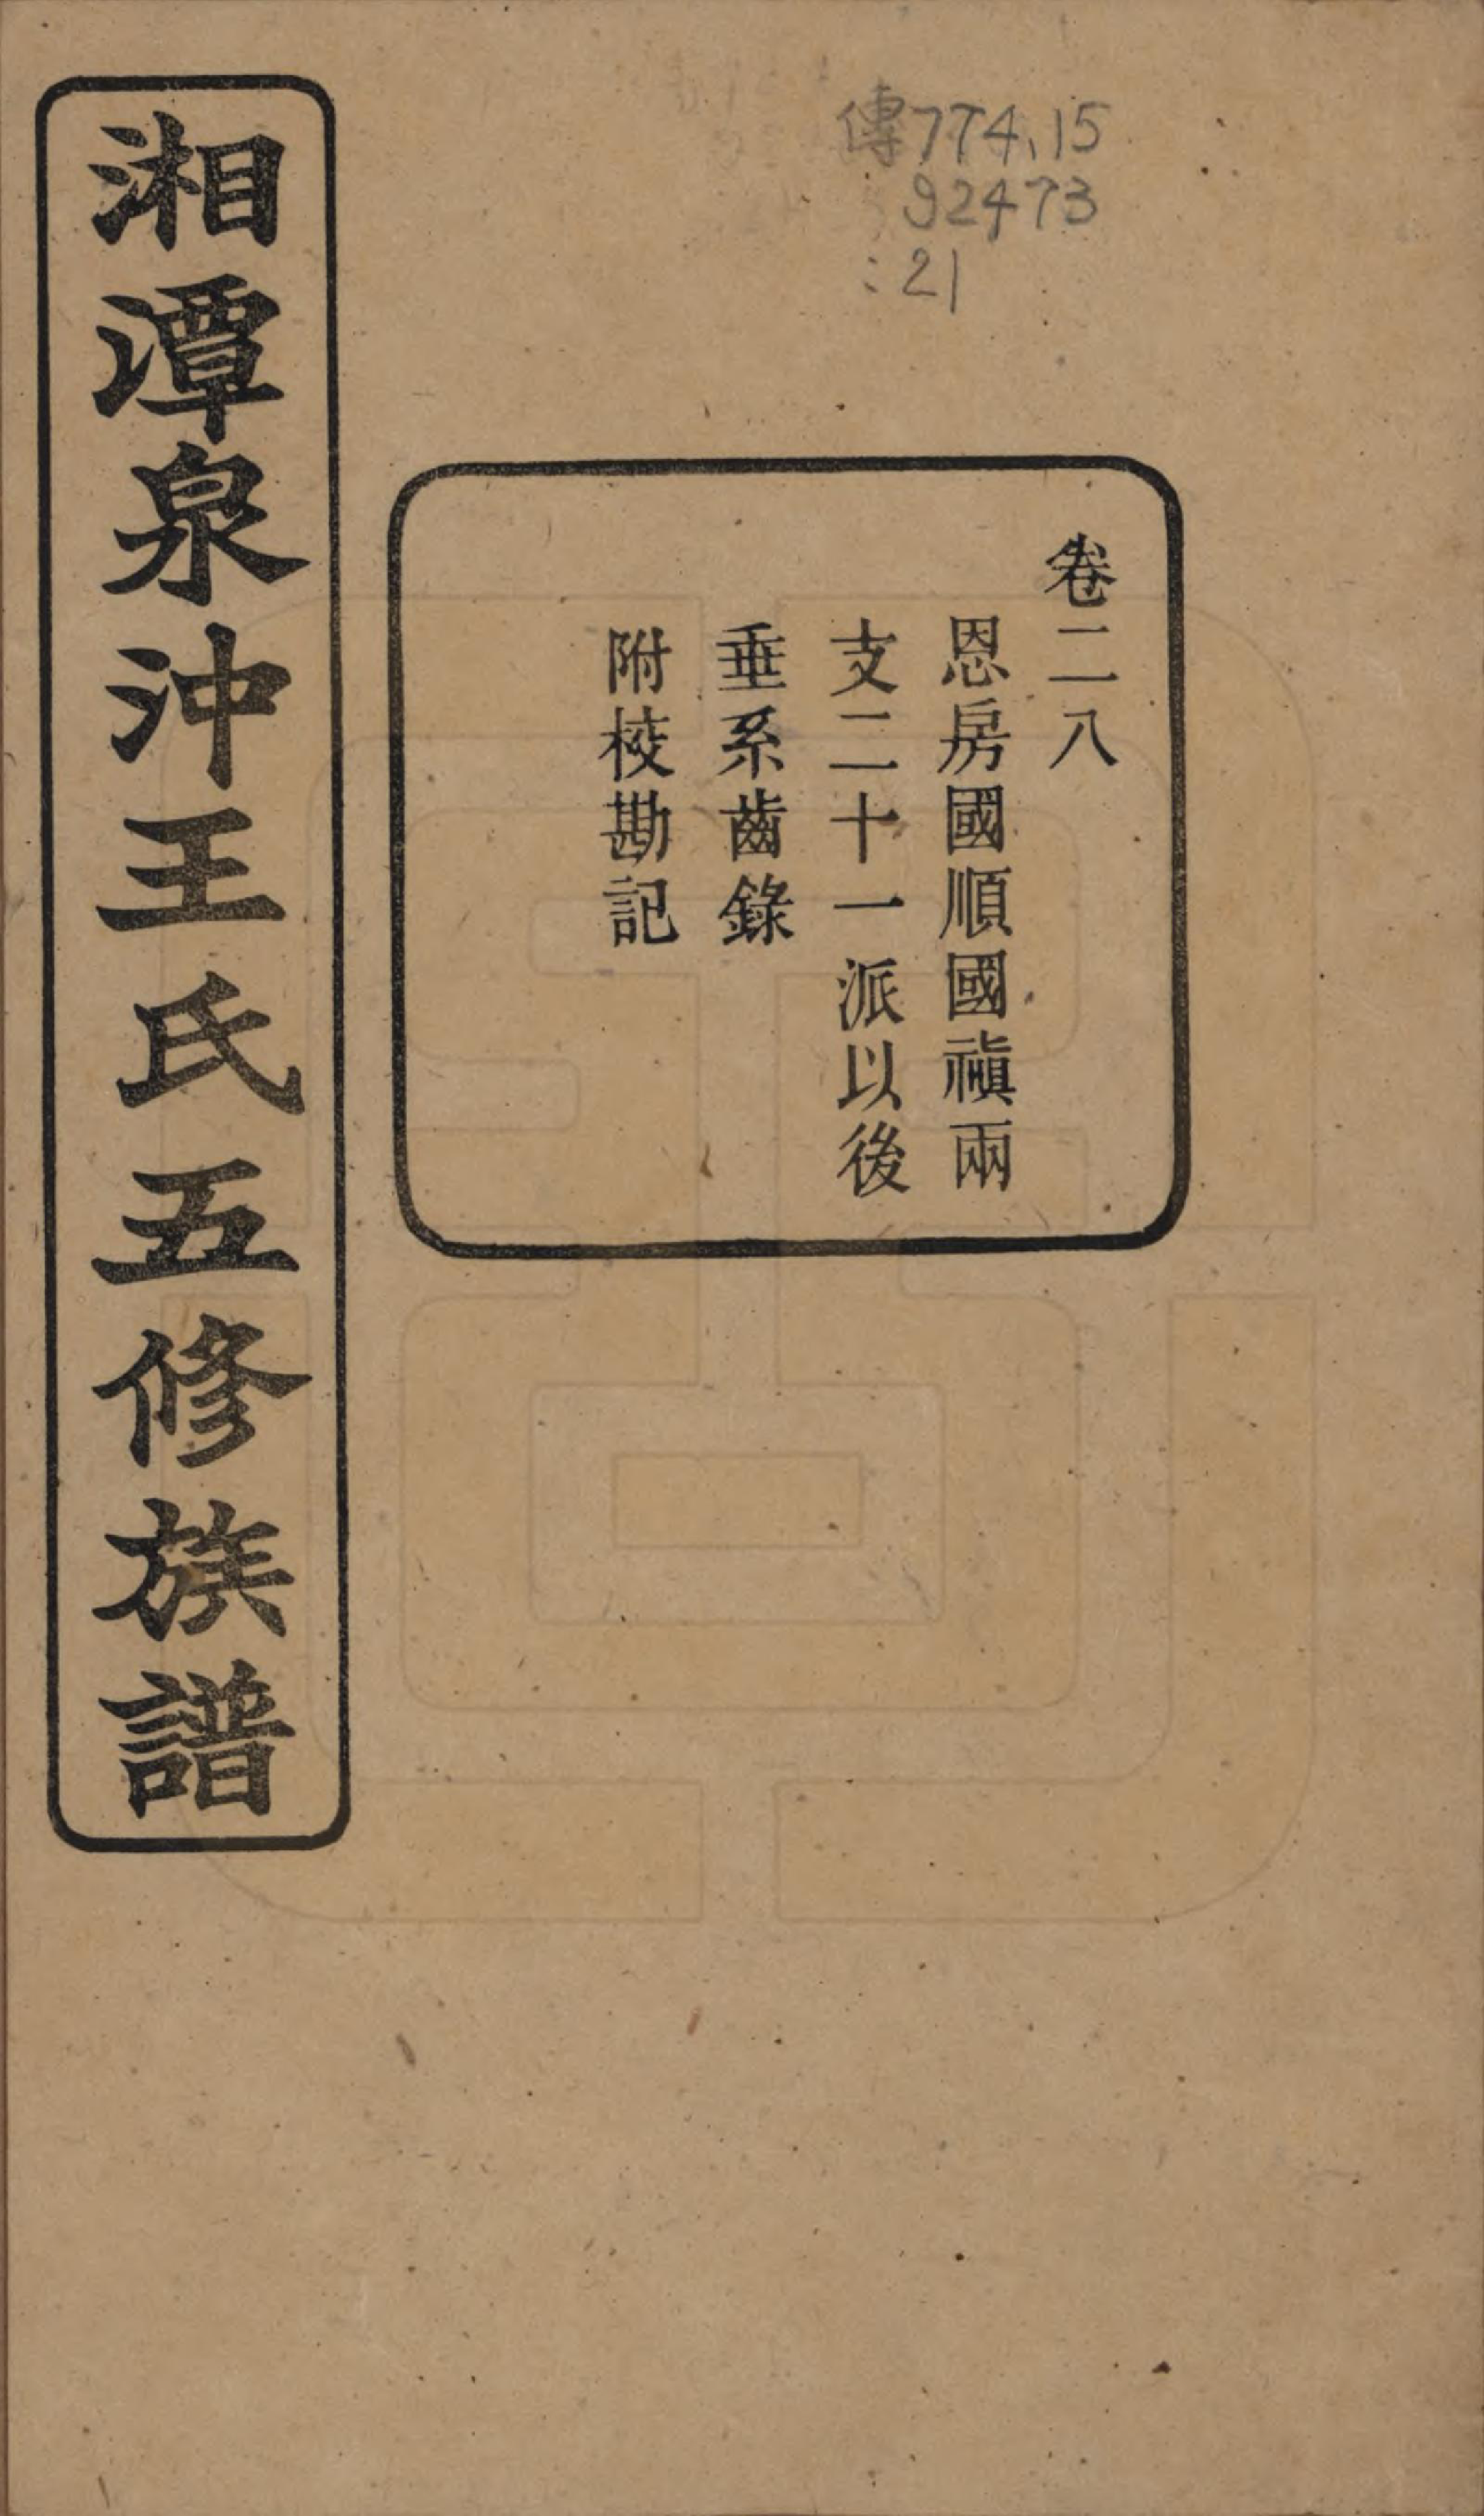 傳774.15
92473
:21
卷二八
恩房國順國禎兩
支二十一派以後
垂系齒錄
附校勘記
湘潭泉沖王氏五修族譜